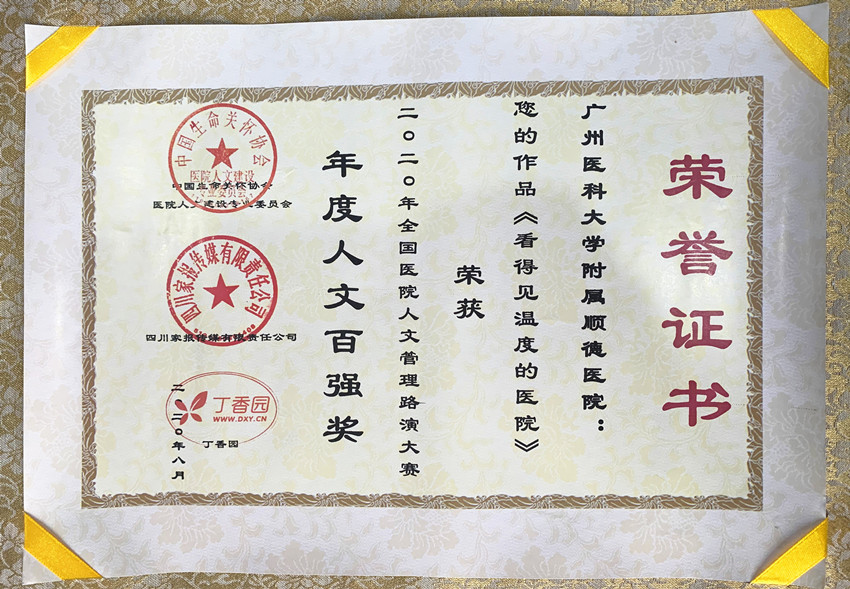 荣誉证书
广州医科大学附属顺德医院：
您的作品《看得见温度的医院》
荣获
二〇二〇年全国医院人文管理路演大赛
年度人文百强奖
中国生命关怀协会
医院人文建设
专业委员会
中国生命关怀协会
医院人文建设专业委员会
四川家报传媒有限责任公司
四川家报传媒有限责任公司
丁香园
WWW.DXY.CN
丁香园
二〇二〇年八月